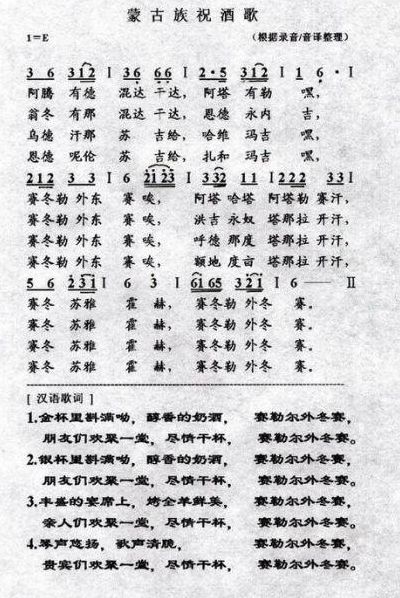 蒙古族祝酒歌
1=E （根据录音/音译整理）
3 6 3 1 2 | 3 6 6 6 | 2·5 3 1 2 | 1 6· |
阿腾 有德 混达 干达， 阿塔 有勒 嘿，
翁冬 有那 混达 干达， 恩德 永内 吉，
乌德 汗那 苏 吉给， 哈维 玛吉 嘿，
恩德 呢伦 苏 吉给， 扎和 玛吉 嘿，
2 1 2 3 3 | 6 2 1 2 3 | 3 3 2 1 1 | 2 2 2 3 3 |
赛冬勒 外东 赛 唉， 阿塔 哈塔 阿塔勒 赛汗，
赛冬勒 外东 赛 唉， 洪吉 永奴 塔那拉 开汗，
赛冬勒 外东 赛 唉， 呼德 那度 塔那拉 开汗，
赛冬勒 外东 赛 唉， 额地 度亩 塔那拉 赛汗，
5 6 2 3 1 | 6 3 | 6 1 6 5 3 2 1 | 6 — ‖
赛冬 苏雅 霍 赫， 赛冬勒 外冬 赛。
赛冬 苏雅 霍 赫， 赛冬勒 外冬 赛。
赛冬 苏雅 霍 赫， 赛冬勒 外冬 赛。
赛冬 苏雅 霍 赫， 赛冬勒 外冬 赛。
[ 汉语歌词 ]
1.金杯里斟满呦，醇香的奶酒， 赛勒尔外冬赛，
朋友们欢聚一堂，尽情干杯， 赛勒尔外冬赛。
2.银杯里斟满呦，醇香的奶酒， 赛勒尔外冬赛，
朋友们欢聚一堂，尽情干杯， 赛勒尔外冬赛。
3.丰盛的宴席上，烤全羊鲜美， 赛勒尔外冬赛，
亲人们欢聚一堂，尽情干杯， 赛勒尔外冬赛。
4.琴声悠扬，歌声清脆， 赛勒尔外冬赛，
贵宾们欢聚一堂，尽情干杯， 赛勒尔外冬赛。